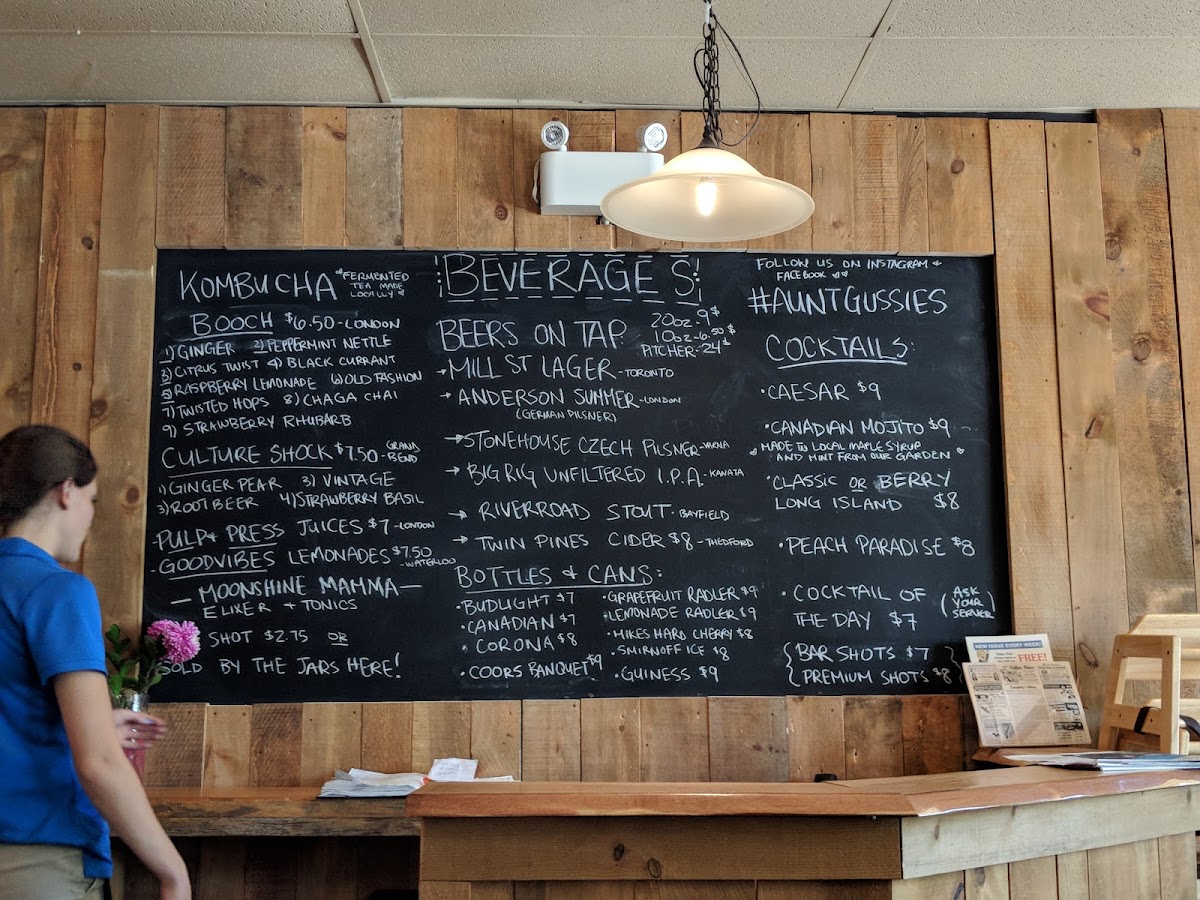 KOMBUCHA
FERMENTED
TEA MADE
LOCALLY
BOOCH $6.50 - LONDON
1) GINGER 2) PEPPERMINT NETTLE
3) CITRUS TWIST 4) BLACK CURRANT
5) RASPBERRY LEMONADE 6) OLD FASHION
7) TWISTED HOPS 8) CHAGA CHAI
9) STRAWBERRY RHUBARB
CULTURE SHOCK $7.50 - GRAND
BEND
1) GINGER PEAR 3) VINTAGE
3) ROOT BEER 4) STRAWBERRY BASIL
- PULP + PRESS JUICES $7 - LONDON
- GOODVIBES LEMONADES $7.50
- WATERLOO
- MOONSHINE MAMMA -
ELIXER + TONICS
SHOT $2.75 OR
SOLD BY THE JARS HERE!
BEVERAGES
BEERS ON TAP
20oz - 9$
10oz - 6.50$
PITCHER - 24$
→ MILL ST LAGER - TORONTO
→ ANDERSON SUMMER - LONDON
(GERMAN PILSNER)
→ STONEHOUSE CZECH PILSNER - VARNA
→ BIG RIG UNFILTERED I.P.A - KANATA
→ RIVERROAD STOUT - BAYFIELD
→ TWIN PINES CIDER $8 - THEDFORD
BOTTLES + CANS:
• BUDLIGHT $7
• CANADIAN $7
• CORONA $8
• COORS BANQUET $9
• GRAPEFRUIT RADLER $9
• LEMONADE RADLER $9
• MIKES HARD CHERRY $8
• SMIRNOFF ICE $8
• GUINESS $9
FOLLOW US ON INSTAGRAM +
FACEBOOK
#AUNTGUSSIES
COCKTAILS:
• CAESAR $9
• CANADIAN MOJITO $9
MADE W LOCAL MAPLE SYRUP
AND MINT FROM OUR GARDEN
• CLASSIC OR BERRY
LONG ISLAND $8
• PEACH PARADISE $8
• COCKTAIL OF
THE DAY $7
(ASK
YOUR
SERVER)
{BAR SHOTS $7
PREMIUM SHOTS $8}
NEW ISSUE EVERY WEEK!
FREE!